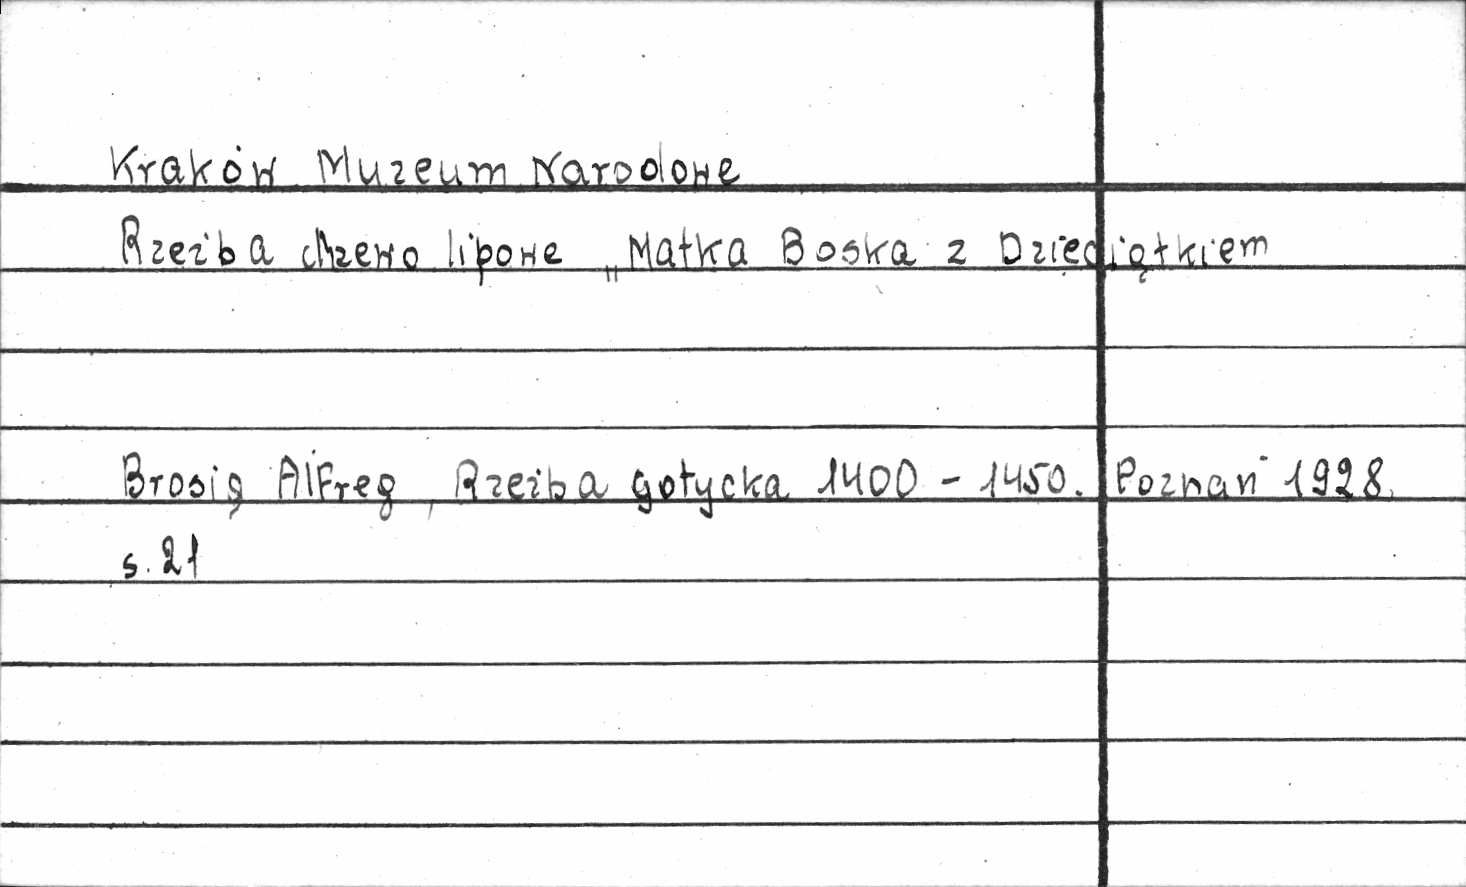 Kraków Muzeum Narodowe
Rzeźba drzewo lipowe „Matka Boska z Dzieciątkiem
Brosig Alfreg, Rzeźba gotycka 1400 - 1450. Poznań 1928.
s. 21